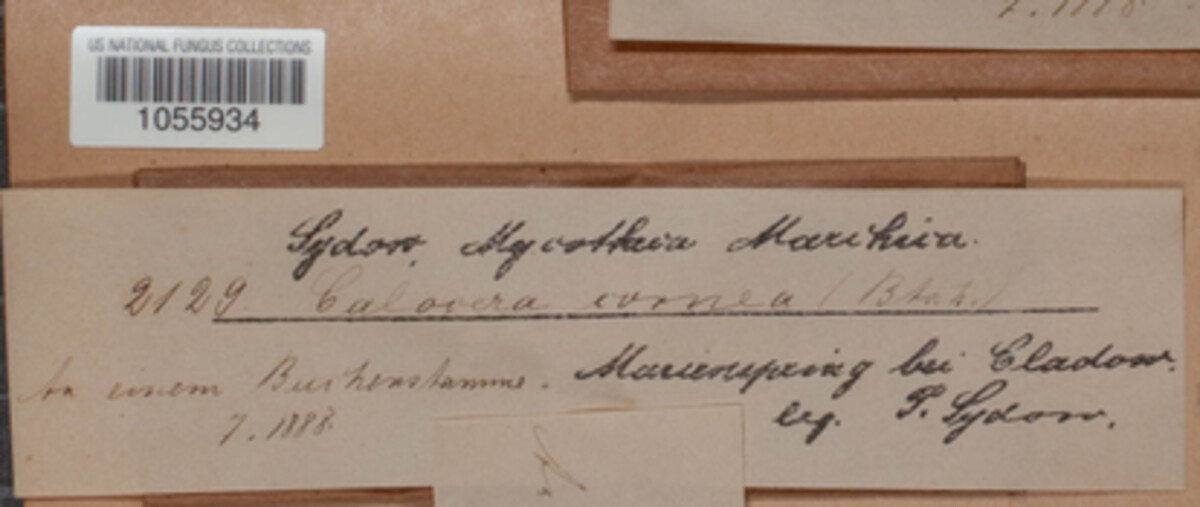 7. 1888
US NATIONAL FUNGUS COLLECTIONS
1055934
Sydow, Mycotheca Marchica.
2129 Calocera cornea (Batsch.)
An einem Buchenstamme. Marienspring bei Cladow.
7. 1888. leg. P. Sydow.